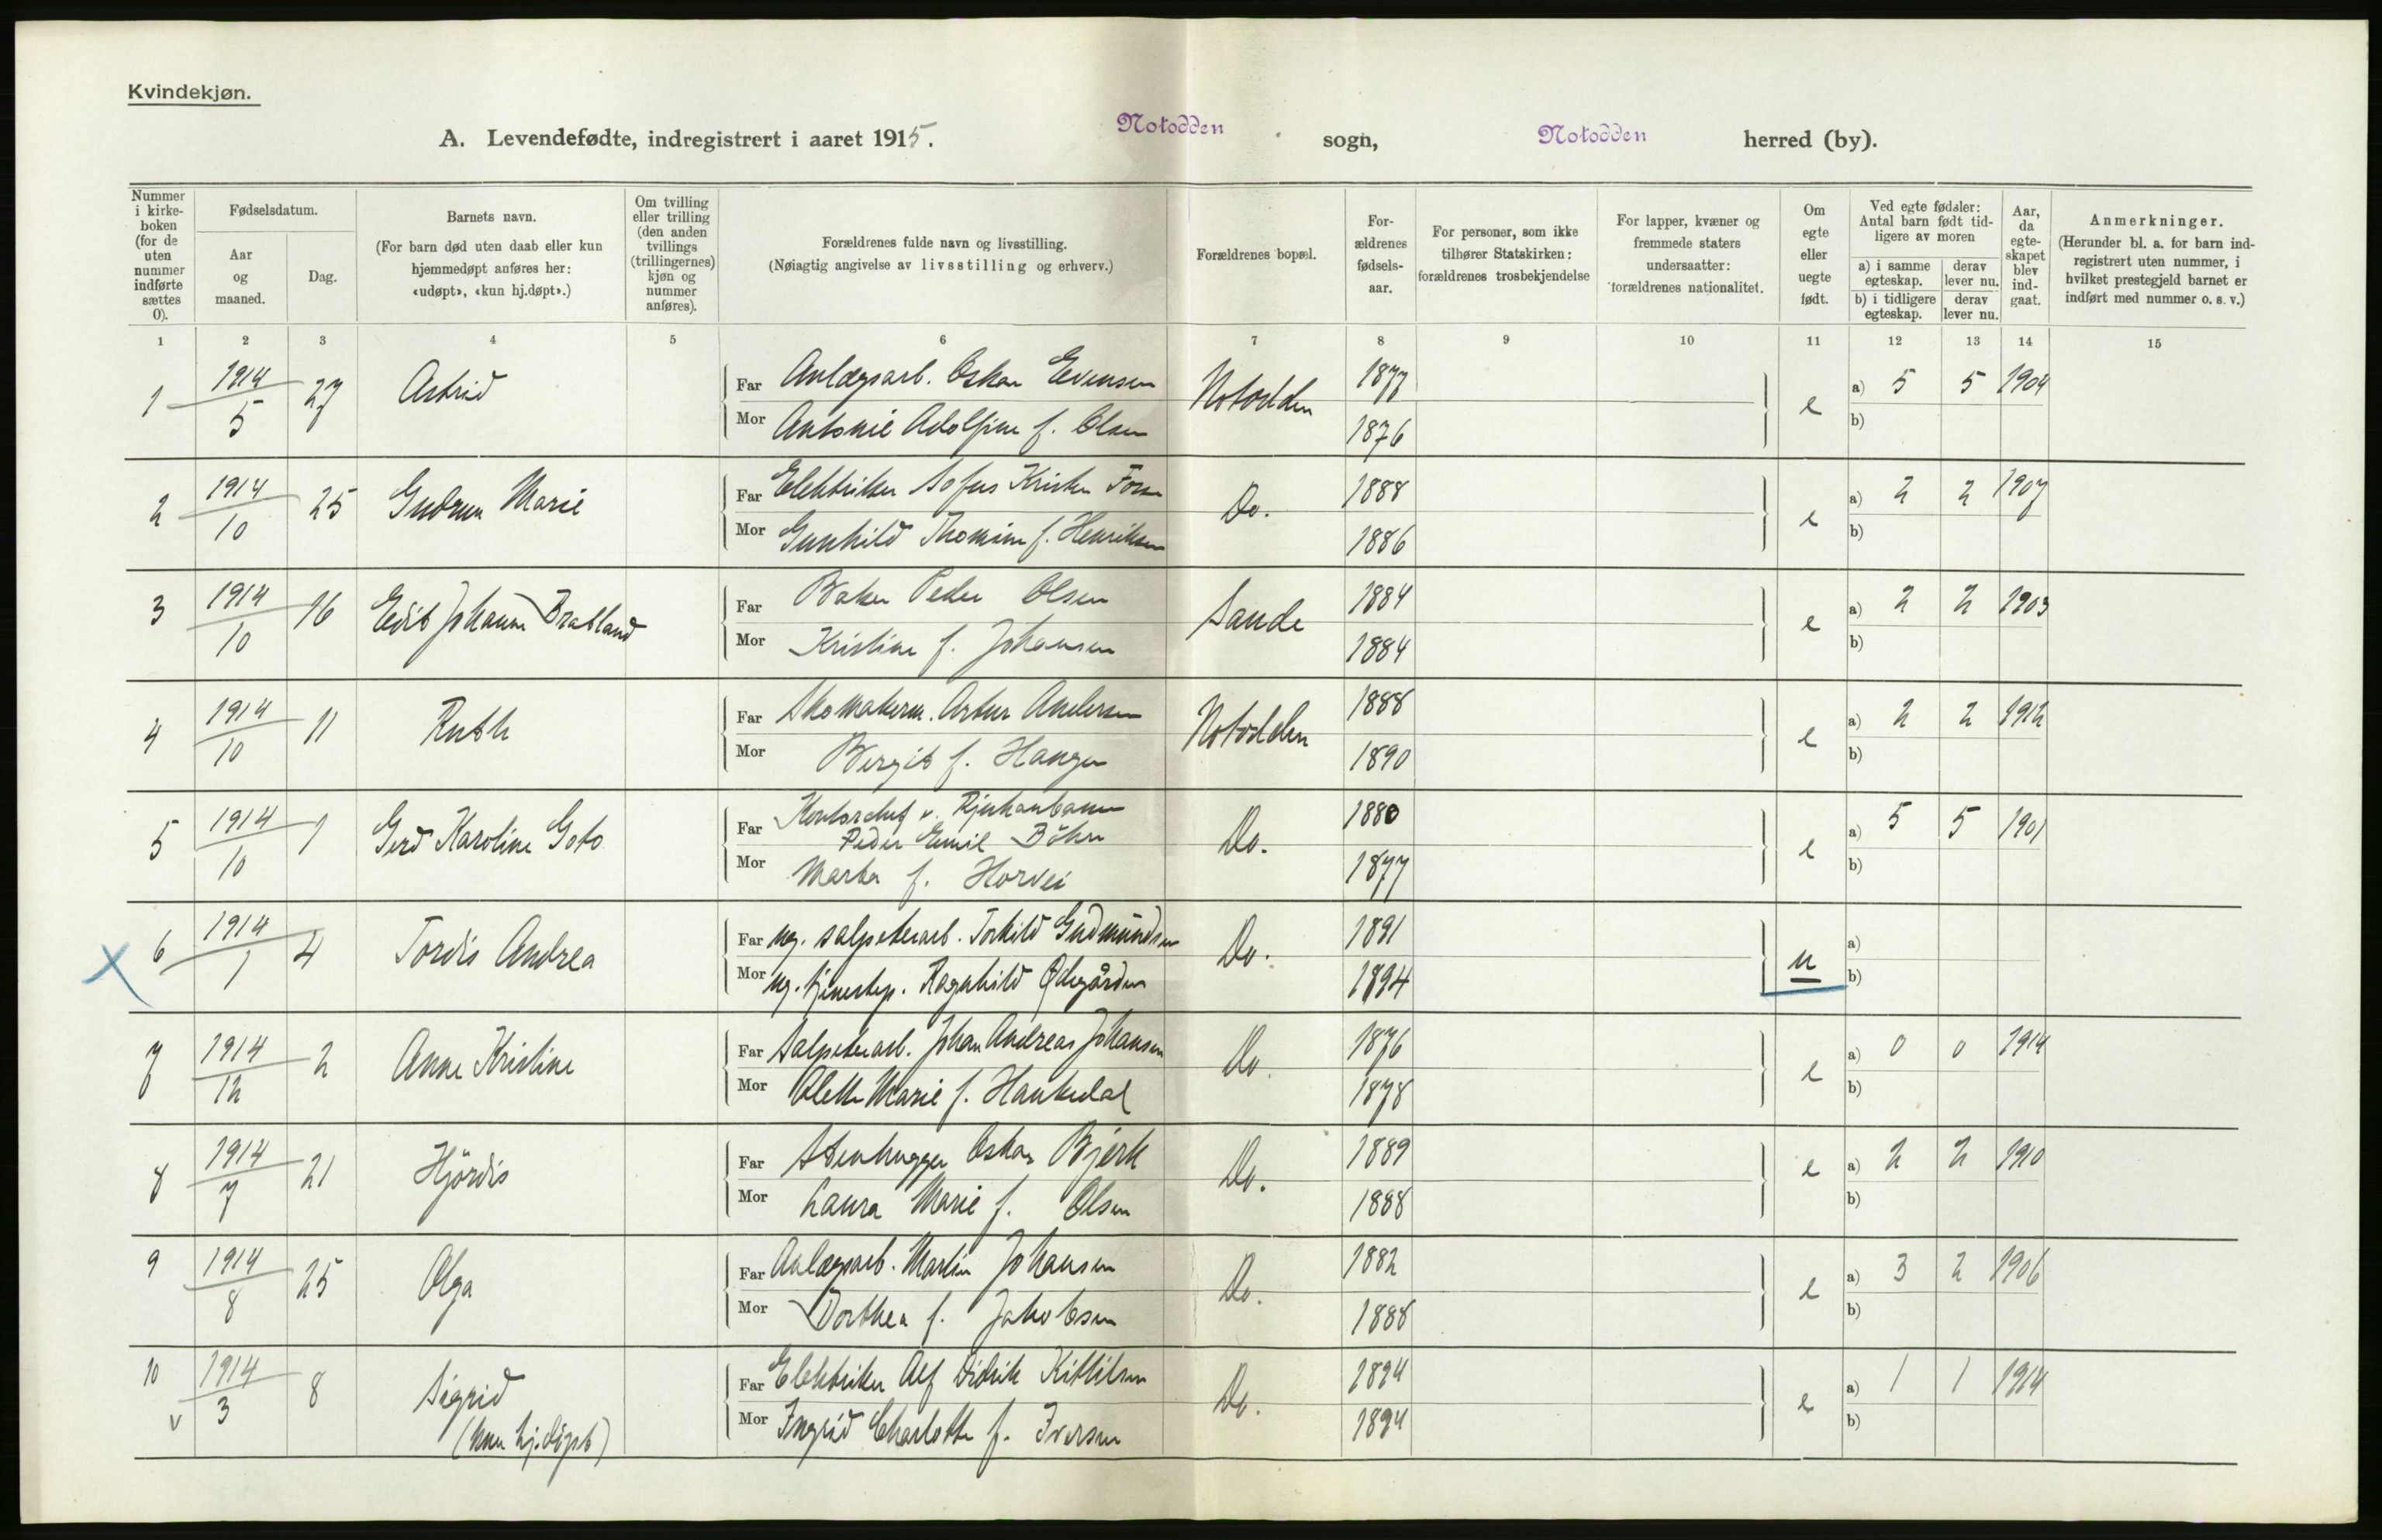 Kvindekjøn.
A. Levendefødte, indregistrert i aaret 1915. Notodden sogn, Notodden herred (by).
Nummer i kirke-boken (for de uten nummer indførte sættes 0).
Fødselsdatum.
Aar og maaned.
Dag.
Barnets navn.
(For barn død uten daab eller kun hjemmedøpt anføres her: «udøpt», «kun hj.døpt».)
Om tvilling eller trilling (den anden tvillings (trillingernes) kjøn og nummer anføres).
Forældrenes fulde navn og livsstilling.
(Nøiagtig angivelse av livsstilling og erhverv.)
Forældrenes bopæl.
For-ældrenes fødsels-aar.
For personer, som ikke tilhører Statskirken: forældrenes trosbekjendelse
For lapper, kvæner og fremmede staters undersaatter: forældrenes nationalitet.
Om egte eller uegte født.
Ved egte fødsler: Antal barn født tid-ligere av moren
a) i samme egteskap. derav lever nu.
b) i tidligere egteskap. derav lever nu.
Aar, da egte-skapet blev ind-gaat.
Anmerkninger.
(Herunder bl. a. for barn ind-registrert uten nummer, i hvilket prestegjeld barnet er indført med nummer o. s. v.)
1 2 3 4 5 6 7 8 9 10 11 12 13 14 15
1 1914/5 27 Astrid Far Anlægsarb. Oskar Evensen Notodden 1877 e a) 5 5 1904
Mor Antonie Adolfine f. Olsen 1876 b)
2 1914/10 25 Gudrun Marie Far Elektriker Sofus Krister Do. 1888 e a) 2 2 1907
Mor Gunhild Thomine f. Henriksen 1886 b)
3 1914/10 16 Edit Johanne Bratland Far Baker Peder Olsen Sande 1884 e a) 2 2 1903
Mor Kristine f. Johansen 1884 b)
4 1914/10 11 Ruth Far Skomakerm. Artur Andersen Notodden 1888 e a) 2 2 1912
Mor Bergit f. Haugen 1890 b)
5 1914/10 1 Gerd Karoline Goto Far Kontorchef v. Rjukanbanen
Peder Emil Böhn Do. 1880 e a) 5 5 1901
Mor Marta f. Horvei 1877 b)
6 1914/1 4 Tordis Andrea Far ug. salpeterarb. Torkild Gudmundsen Do. 1891 u a)
Mor ug. tjenestep. Ragnhild Ødegården 1894 b)
7 1914/12 2 Anne Kristine Far Salpeterarb. Johan Andreas Johansen Do. 1876 e a) 0 0 1914
Mor Olette Marie f. Haukedal 1878 b)
8 1914/7 21 Hjördis Far Stenhugger Oskar Bjerk Do. 1889 e a) 2 2 1910
Mor Laura Marie f. Olsen 1888 b)
9 1914/8 25 Olga Far Anlægsarb. Martin Johansen Do. 1882 e a) 3 2 1906
Mor Dorthea f. Jakobsen 1888 b)
10 1914/3 8 Sigrid Far Elektriker Alf Didrik Kittilsen Do. 1894 e a) 1 1 1914
v (kun hj.døpt) Mor Ingrid Charlotte f. Iversen 1894 b)